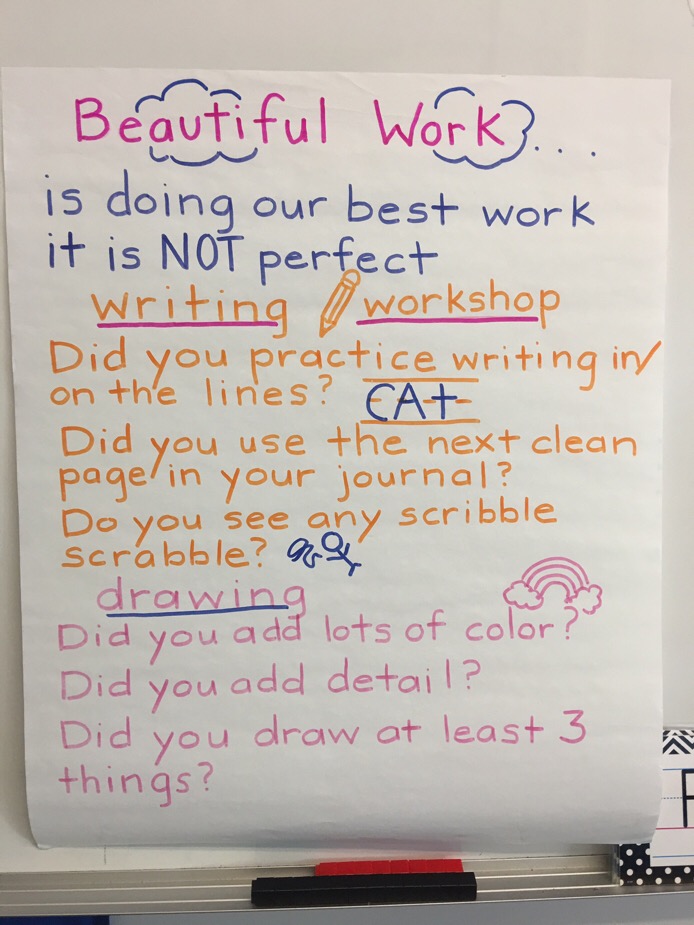 Beautiful Work...
is doing our best work
it is NOT perfect
writing workshop
Did you practice writing in/
on the lines? CAt
Did you use the next clean
page in your journal?
Do you see any scribble
scrabble?
drawing
Did you add lots of color?
Did you add detail?
Did you draw at least 3
things?